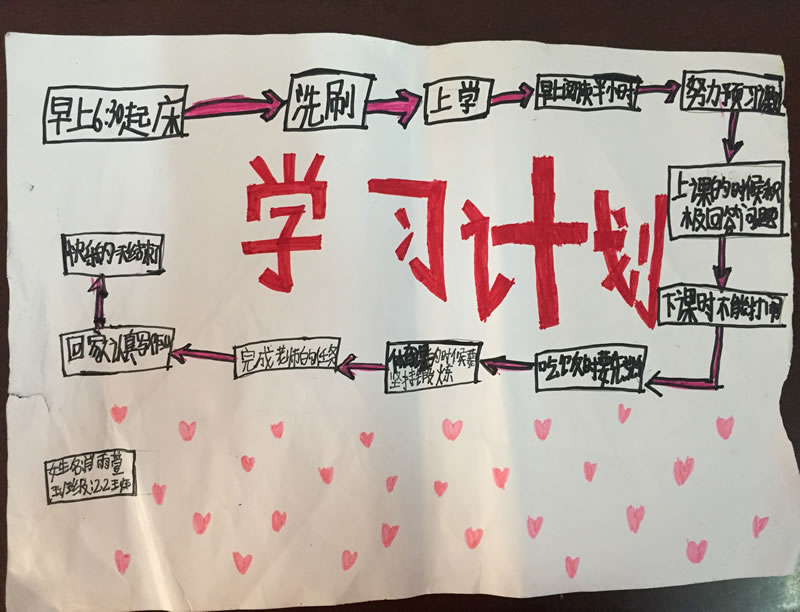 早上6:30起床
洗刷
上学
早上阅读半小时
努力预习课题
学习计划
上课的时候积
极回答问题
下课时不能打闹
吃饭时要
的时候要
坚持锻炼
完成老师的任务
回家认真写作业
快乐的一天结束
姓名肖雨萱